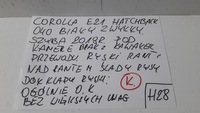 COROLLA E21 HATCHBACK
040 BIAŁY ZWYKŁY
SZYBA 2019R. POD
KAMERĘ BRAK KAWAŁEK
PRZEWODU RYSKI RANT
NAD RANTEM ŚLADY RYSY
DOKŁADY RYSY
OGÓLNIE O.K
BEZ WIĘKSZYCH UWAG
K
H28